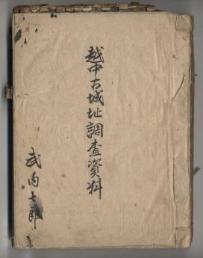 越中古城址調査資料
武内七郎